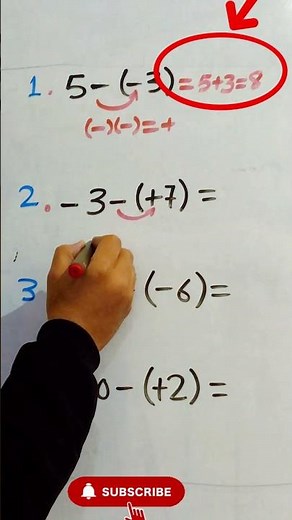 1. 5-(-3)=5+3=8
(-)(-)=+
2. -3-(+7)=
3 (-6)=
0-(+2)=
SUBSCRIBE